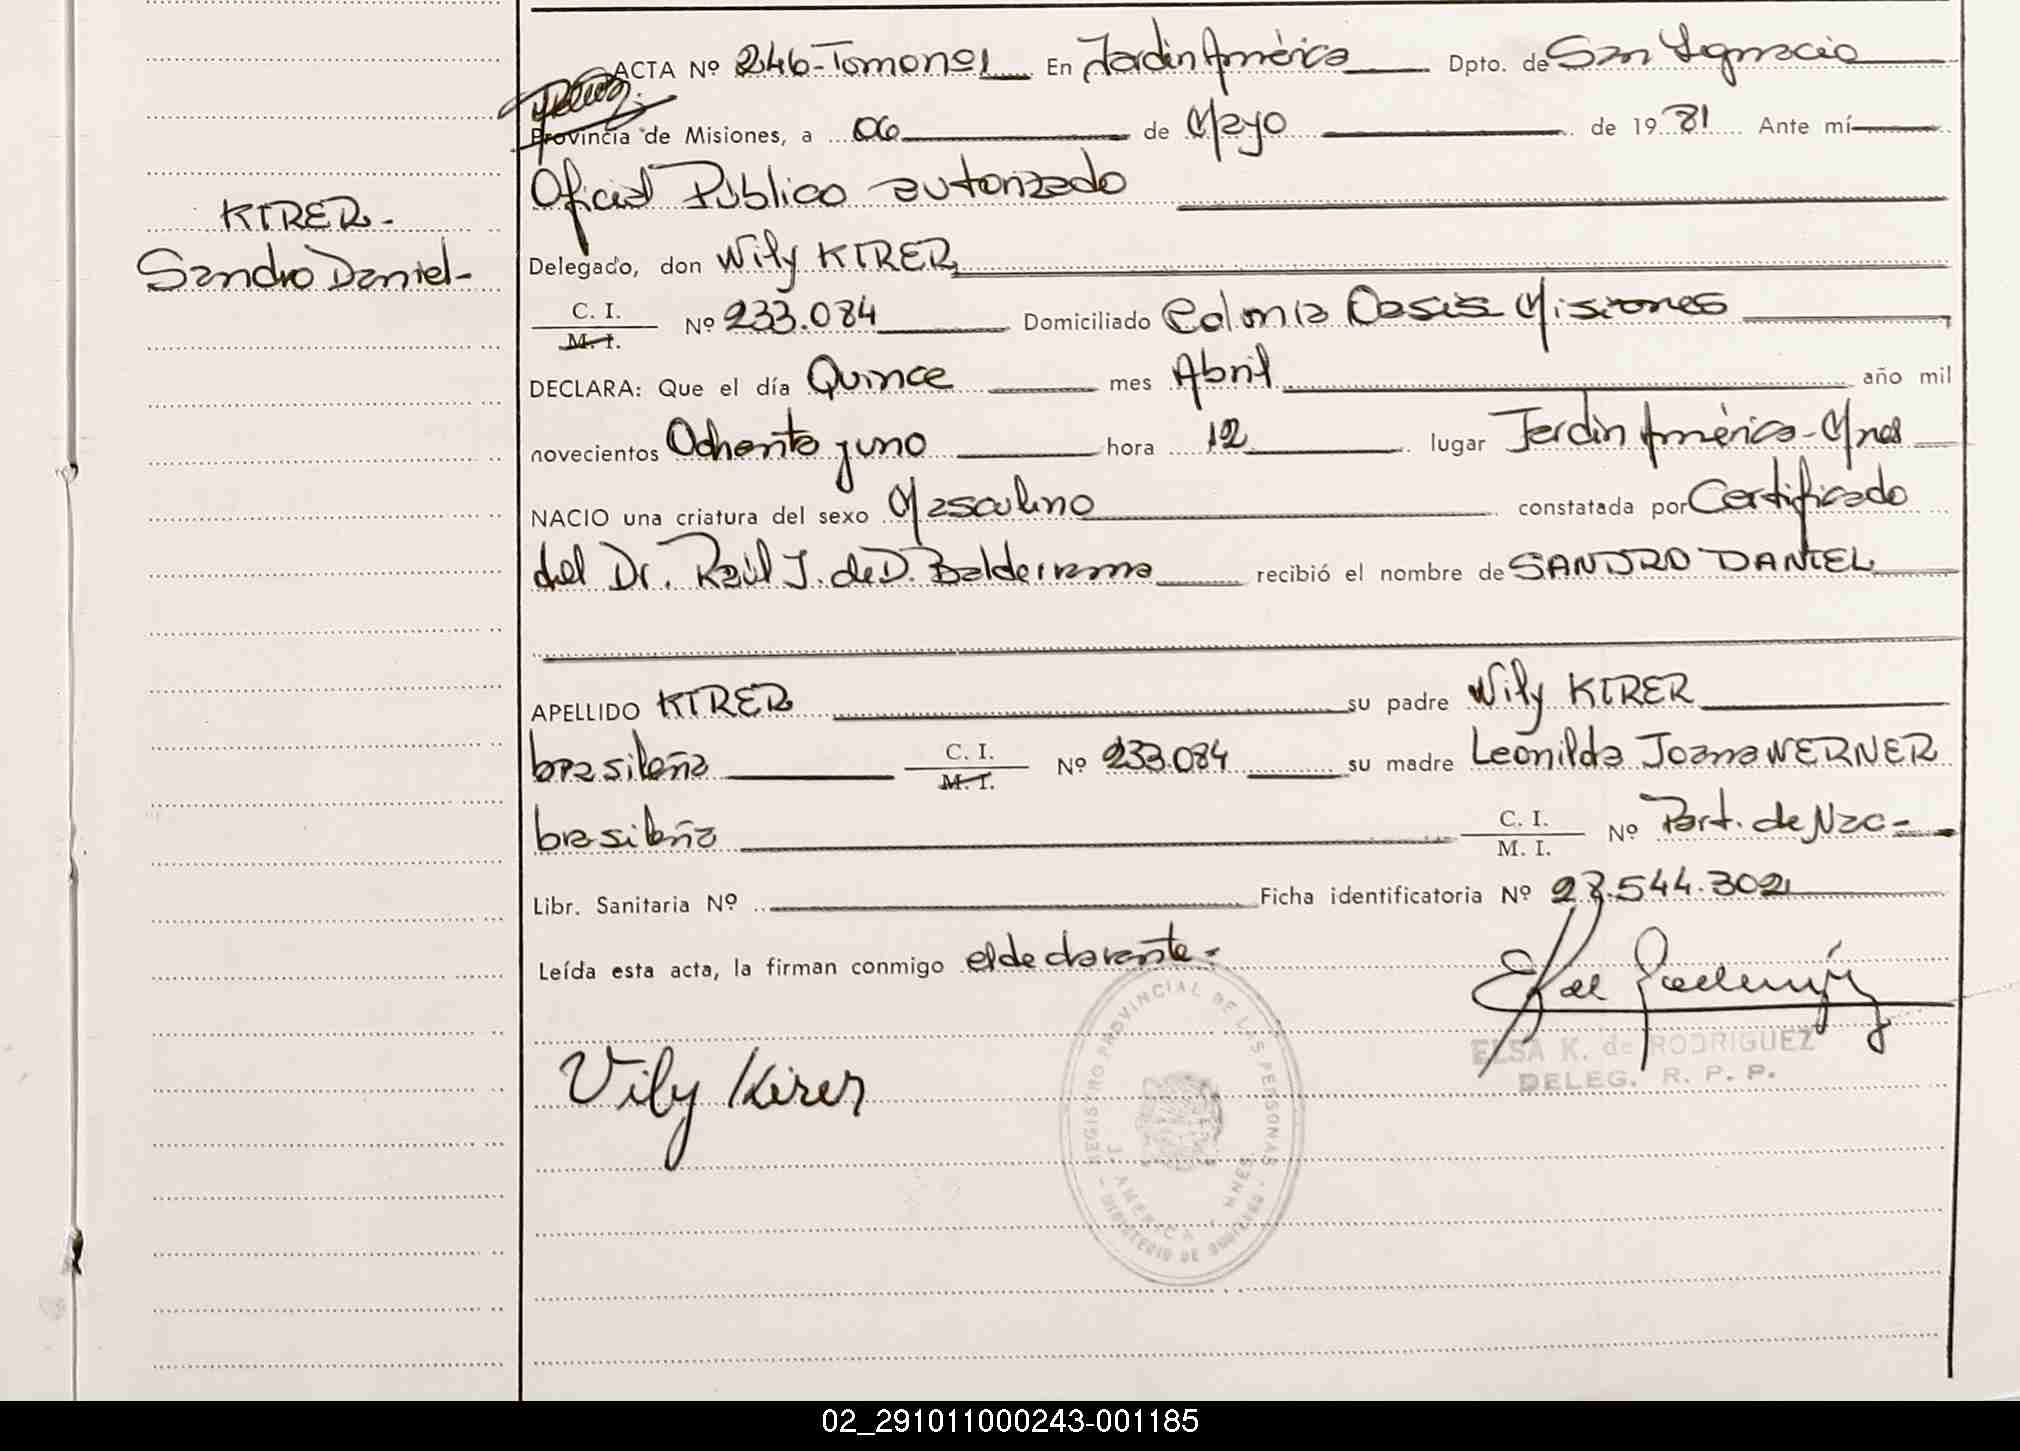 ACTA Nº 246-Tomo nº1 En Jardín América Dpto. de San Ignacio
Provincia de Misiones, a 06 de Mayo de 1981 Ante mí
Oficial Público autorizado
KIRER-
Sandro Daniel-
Delegado, don Wily KIRER
C. I.
M. I. Nº 233.084 Domiciliado Colonia Oasis Misiones
DECLARA: Que el día Quince mes Abril año mil
novecientos Ochenta y uno hora 12 lugar Jardín América-Mnes
NACIO una criatura del sexo Masculino constatada por Certificado
del Dr. Raúl J. de D. Balderrama recibió el nombre de SANDRO DANIEL
APELLIDO KIRER su padre Wily KIRER
brasileña C. I.
M. I. Nº 233.084 su madre Leonilda Joana WERNER
brasileña C. I.
M. I. Nº Part. de Nac-
Libr. Sanitaria Nº Ficha identificatoria Nº 28.544.302
Leída esta acta, la firman conmigo el declarante-
ELSA K. de RODRIGUEZ
DELEG. R. P. P.
Vily Kirer
REGISTRO PROVINCIAL DE LAS PERSONAS
J. AMERICA - MNES
MINISTERIO DE GOBIERNO
02_291011000243-001185